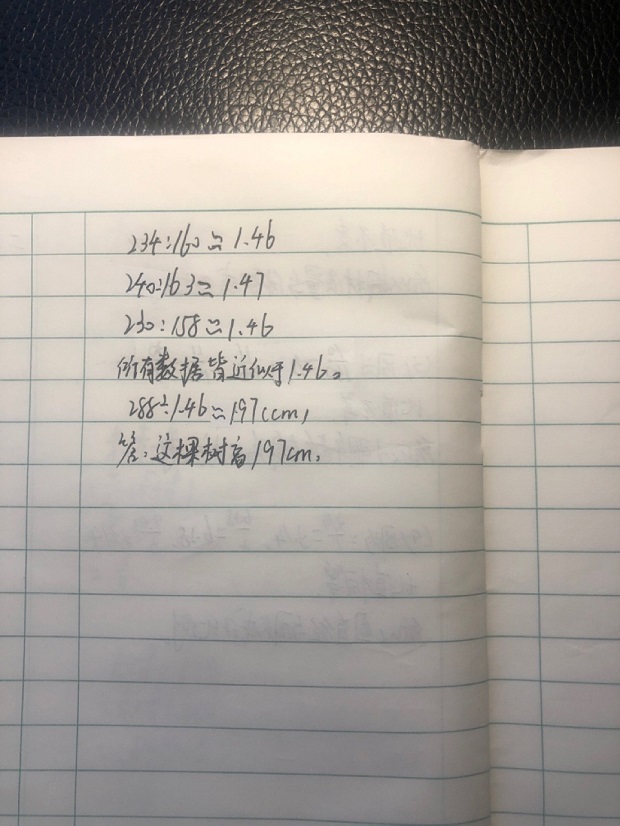 234÷160≈1.46
240÷163≈1.47
230÷158≈1.46
所有数据皆近似于1.46。
288÷1.46≈197(cm)
答：这棵树高197cm。